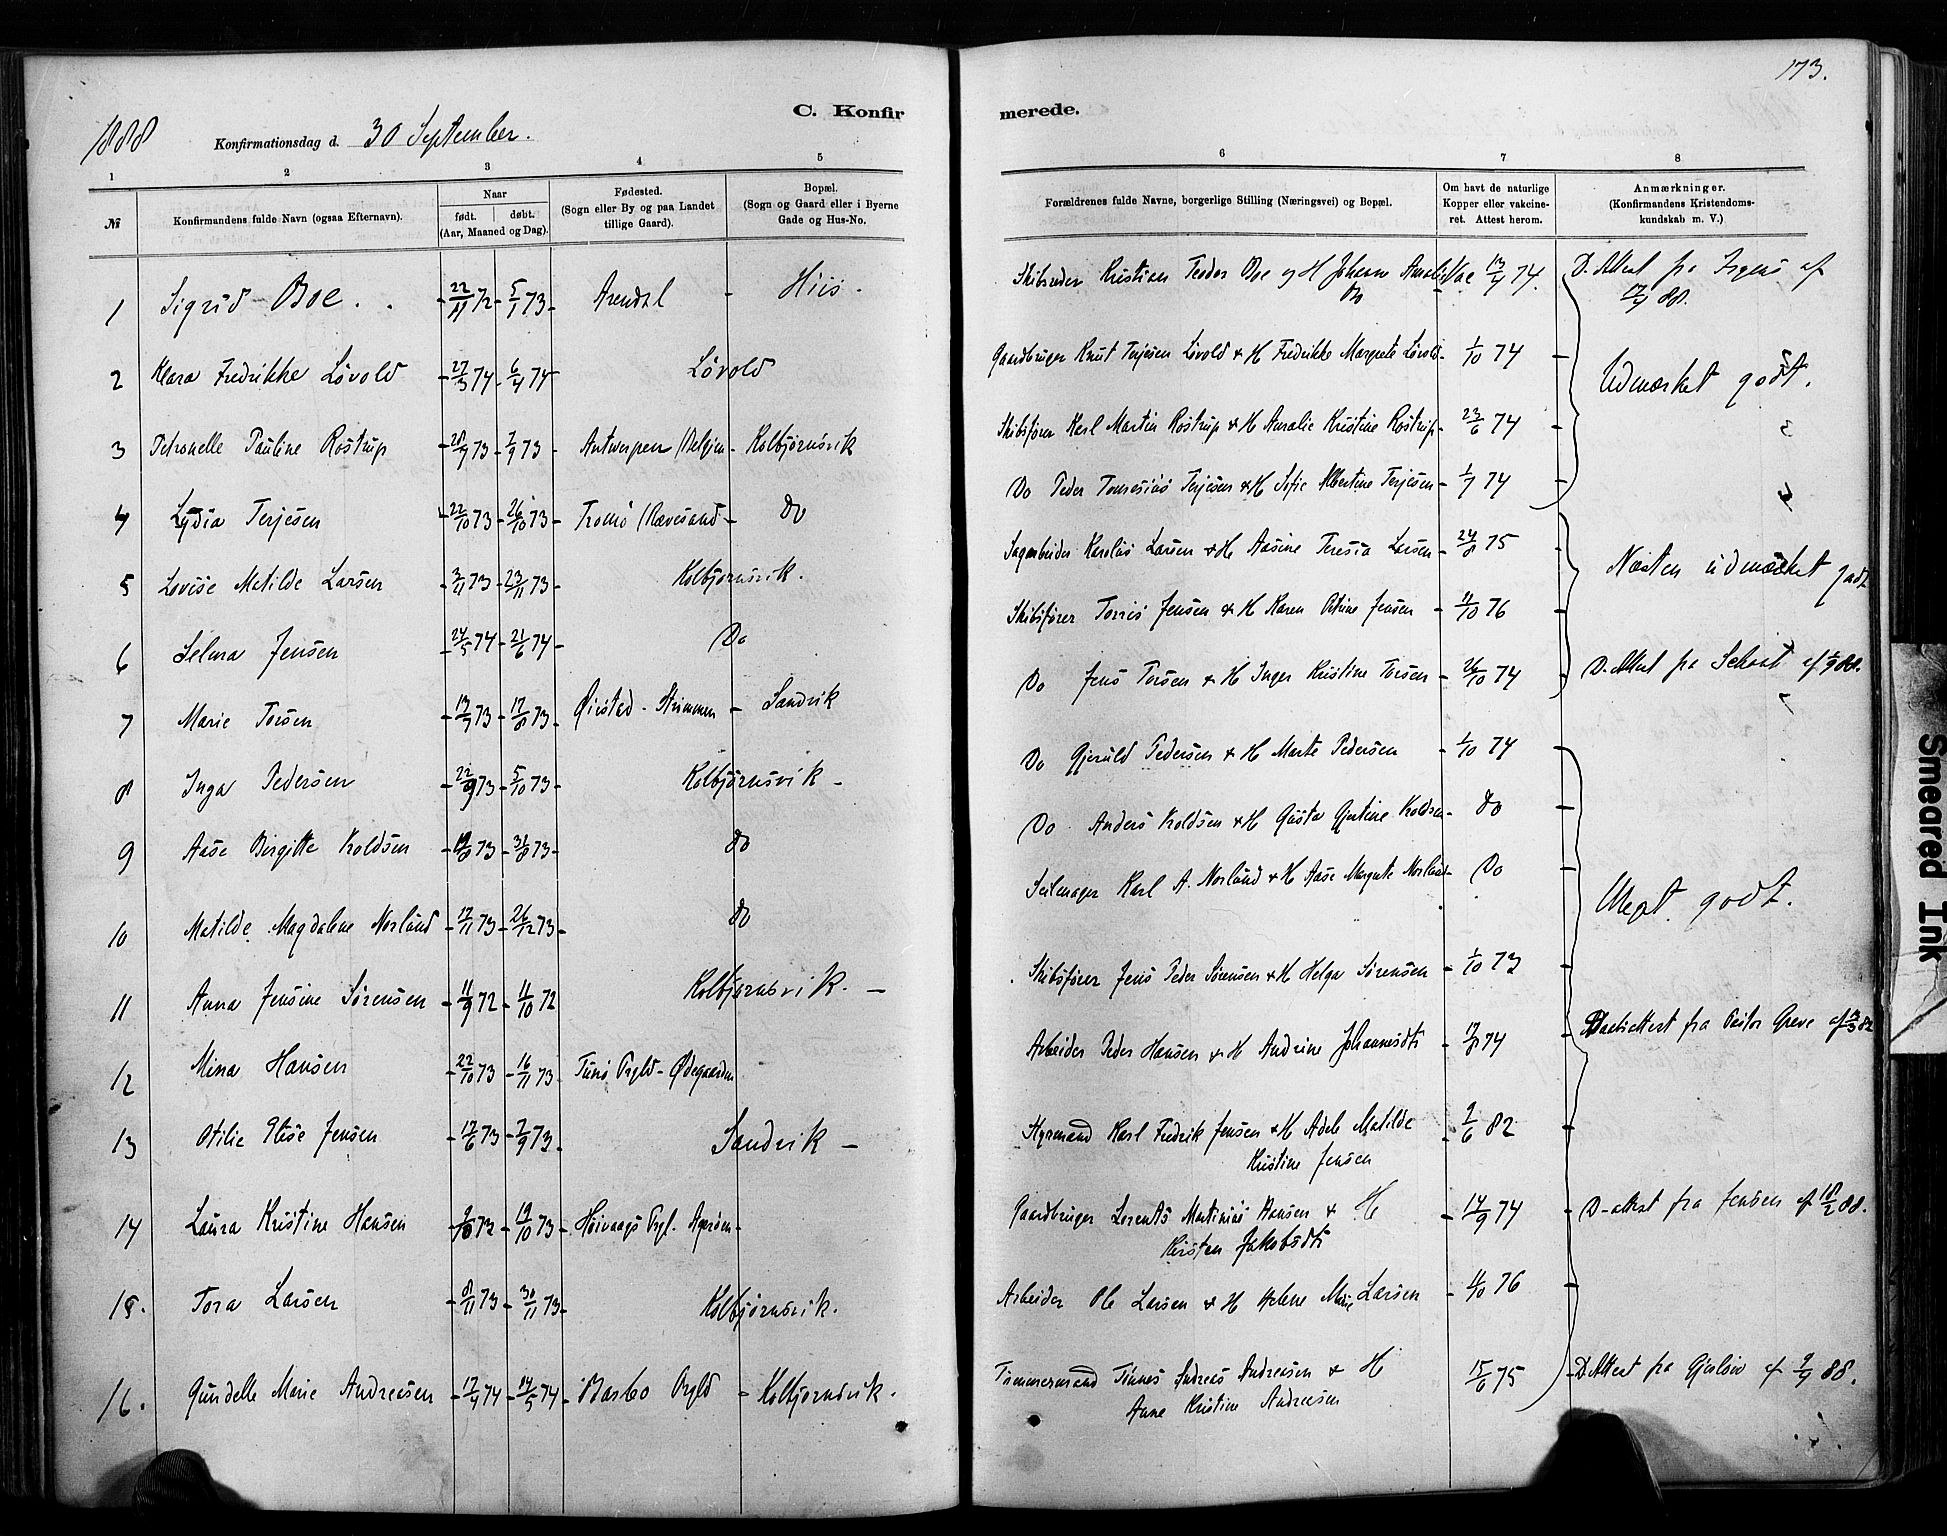 173.
C. Konfir merede.
1888
Konfirmationsdag d. 30 September.
1 2 3 4 5 6 7 8
№
Konfirmandens fulde Navn (ogsaa Efternavn).
Naar
født. døbt.
(Aar, Maaned og Dag).
Fødested.
(Sogn eller By og paa Landet
tillige Gaard).
Bopæl.
(Sogn og Gaard eller i Byerne
Gade og Hus-No.
Forældrenes fulde Navne, borgerlige Stilling (Næringsvei) og Bopæl.
Om havt de naturlige
Kopper eller vakcine-
ret. Attest herom.
Anmærkninger.
(Konfirmandens Kristendoms-
kundskab m. V.)
1 Sigrid Boe. 22/11 72 5/1 73 Arendal Hiis. Skibsreder Kristian Teodor Boe og H Johanne Amalie Bo Vac 13/7 74. D. Attest fra af 17/9 88.
2 Klara Fredrikke Løvold 27/3 74 6/4 74 Løvold Gaardbruger Knut Terjesen Løvold & H Fredrikke Margrete Løvold 1/10 74
Udmærket godt.
3 Petronelle Pauline Rostrup 28/7 73 7/9 73 Antwerpen (Belgien Kolbjørnsvik Skibsfører Karl Martin Rostrup & H Amalie Kristine Rostrup 23/6 74
4 Lydia Terjesen 22/10 73 26/10 73 Tromø (Rævesand Do Do Peder Terjesen & H Sofie Albertine Terjesen 1/7 74
5 Lovise Matilde Larsen 3/11 73 23/11 73 Kolbjørnsvik. Sagarbeider Larsen & H Aasine Teresia Larsen 24/8 75
Næsten udmærket godt
6 Selma Jensen 24/5 74 21/6 74 Do Skibsfører Torris Jensen & H Karen Petrine Jensen 11/10 76
7 Marie Torsen 13/7 73 17/8 73 Øiestad - Strømmen Sandvik Do Jens Torsen & H Inger Kristine Torsen 26/10 74 D. Attest fra af 1/9 88.
8 Inga Pedersen 22/9 73 5/10 73 Kolbjørnsvik Do Gjeruld Pedersen & H Marte Pedersen 1/10 74
9 Aase Birgitte Koldsen 73 31/8 73 Do Do Anders Koldsen & H Gusta Gjertine Koldsen Do
10 Matilde Magdalene Norlund 17/11 73 26/12 73 Do Seilmager Karl A. Norlund & H Aase Margrete Norlund Do
Meget godt.
11 Anna Jensine Sørensen 11/9 72 11/10 72 Kolbjørnsvik. Skibsfører Jens Peder Sørensen & H Helga Sørensen 1/10 73
12 Mina Hansen 22/10 73 16/11 73 Ødegaarden Arbeider Peder Hansen & H Andrine Johannesdt 17/8 74 Daabsattest fra Pastor Greve af
13 Otilie Elise Jensen 17/6 73 7/9 73 Sandvik Styrmand Karl Fredrik Jensen & H Adele Matilde Kristine Jensen 9/6 82
14 Laura Kristine Hansen 73 19/10 73 Høivaags Prgl. Gaardbruger Lorents Martinius Hansen & H Kirsten Jakobsdt 14/9 74 D-attest fra Jensen af 18/2 88.
15. Tora Larsen 8/11 73 30/11 73 Kolbjørnsvik. Arbeider Ole Larsen & H Helene Marie Larsen 4/10 76
16. Gundelle Marie Andreasen 17/4 74 14/5 74 Barbo Prgld Kolbjørnsvik. Tømmermand Tønnes Andreas Andreasen & H Anne Kristine Andreasen 15/6 75 D. Attest fra af 9/9 88.
Smeared Ink